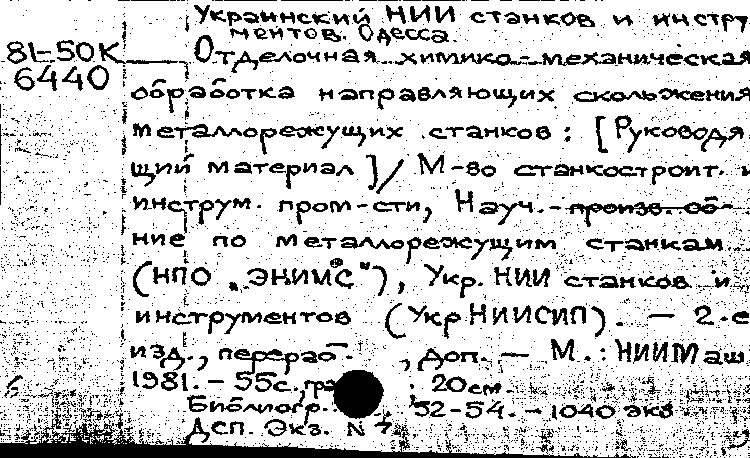 Украинский НИИ станков и инстру
ментов. Одесса.
81-50К
6440
Отделочная химико-механическая
обработка направляющих скольжения
металлорежущих станков: [Руководя
щий материал] / М-во станкостроит. и
инструм. пром-сти, Науч.-произв. об-
ние по металлорежущим станкам
(НПО „ЭНИМС"), Укр. НИИ станков и
инструментов (УкрНИИСИП). — 2-е
изд., перераб. , доп. — М.: НИИМаш
1981. – 55с., : 20см.
Библиогр. 52-54. – 1040 экз
Дсп. Экз. N